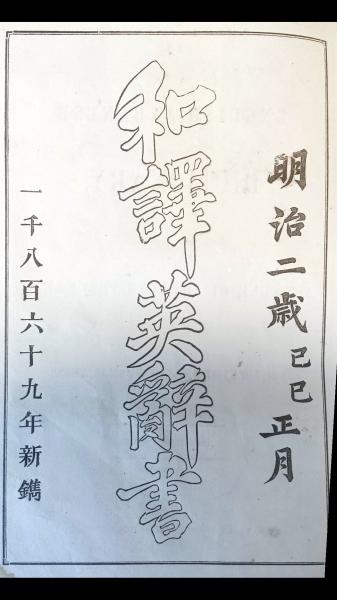 明治二歳己巳正月
和譯英辭書
一千八百六十九年新鐫